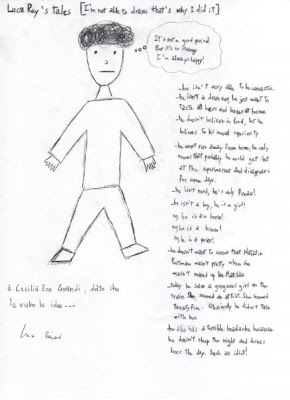 Luca Rey's tales [I'm not able to draw that's why I did it]
It's not a good period.
But it's in
I'm always happy!
_he isn't very able to be romantic.
_he isn't a drunker, he just want to
taste all beers and
_he doesn't believe in God, but he
believes in his moral superiority
_he won't run away from home, he only
knows that probably he would get lost
at the supermarket and disappears
for some days.
_he isn't nerd, he's only Pendu!
_he isn't a boy, he is a girl!
no, he is a horse!
no, he is a
no, he is a poser!
_he doesn't want to know that Natalie
Portman wasn't pretty when she
wasn't made up like Matilda
_today he saw a gorgeous girl on the
train. She seemed an artist. She seemed
twentyfive. Obviously he didn't talk
with her.
_he has a terrible headache because
he doesn't sleep the night and drinks
beer the day. Such an idiot!
a Cecilia Zoe Grandi, dato che
le rubo le idee...
Luca